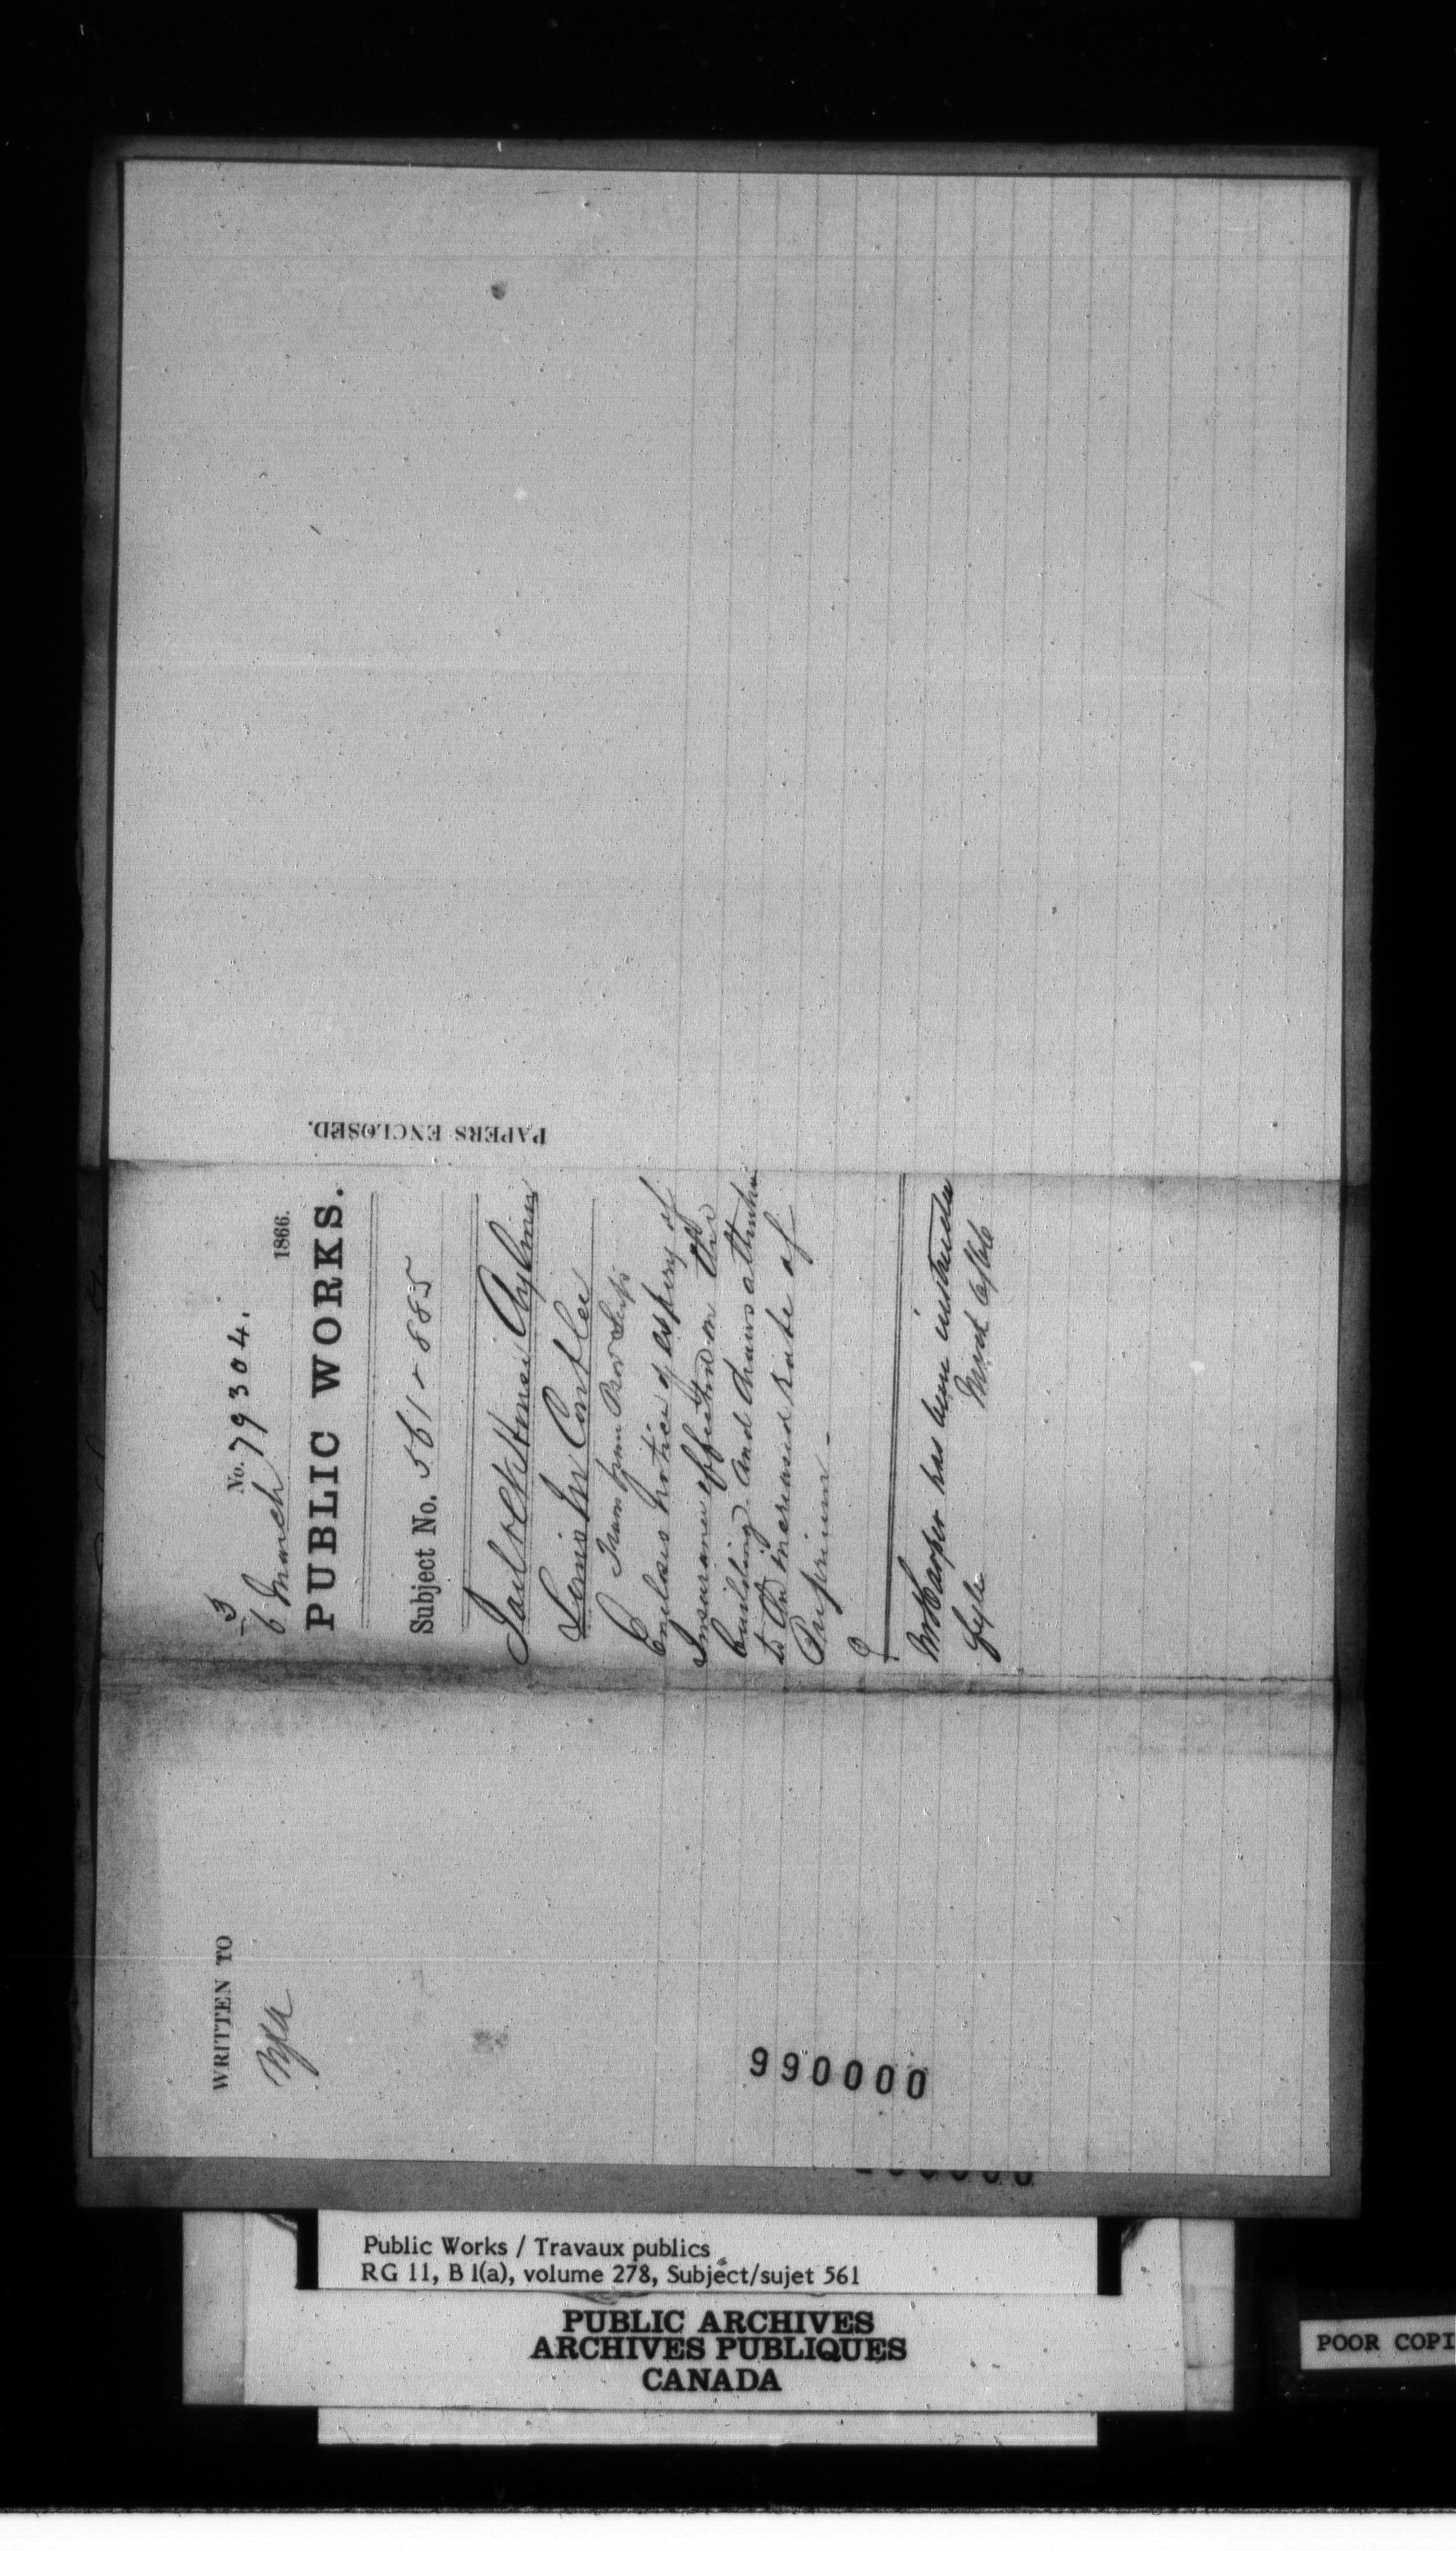 5
No. 79304.
6 March 1866.
PUBLIC WORKS.
Subject No. 561 + 885
Jail & Ct House Aylmer
Louis W Coutlee
Encloses Notice of expiry of
Insurance effected on the
building. And draws attention
to the increased rate of
Premium -
Mr Harper has been instructed
March 6/66
fyle
PAPERS ENCLOSED.
WRITTEN TO
990000
Public Works / Travaux publics
RG 11, B 1(a), volume 278, Subject/sujet 561
PUBLIC ARCHIVES
ARCHIVES PUBLIQUES
CANADA
POOR COPI